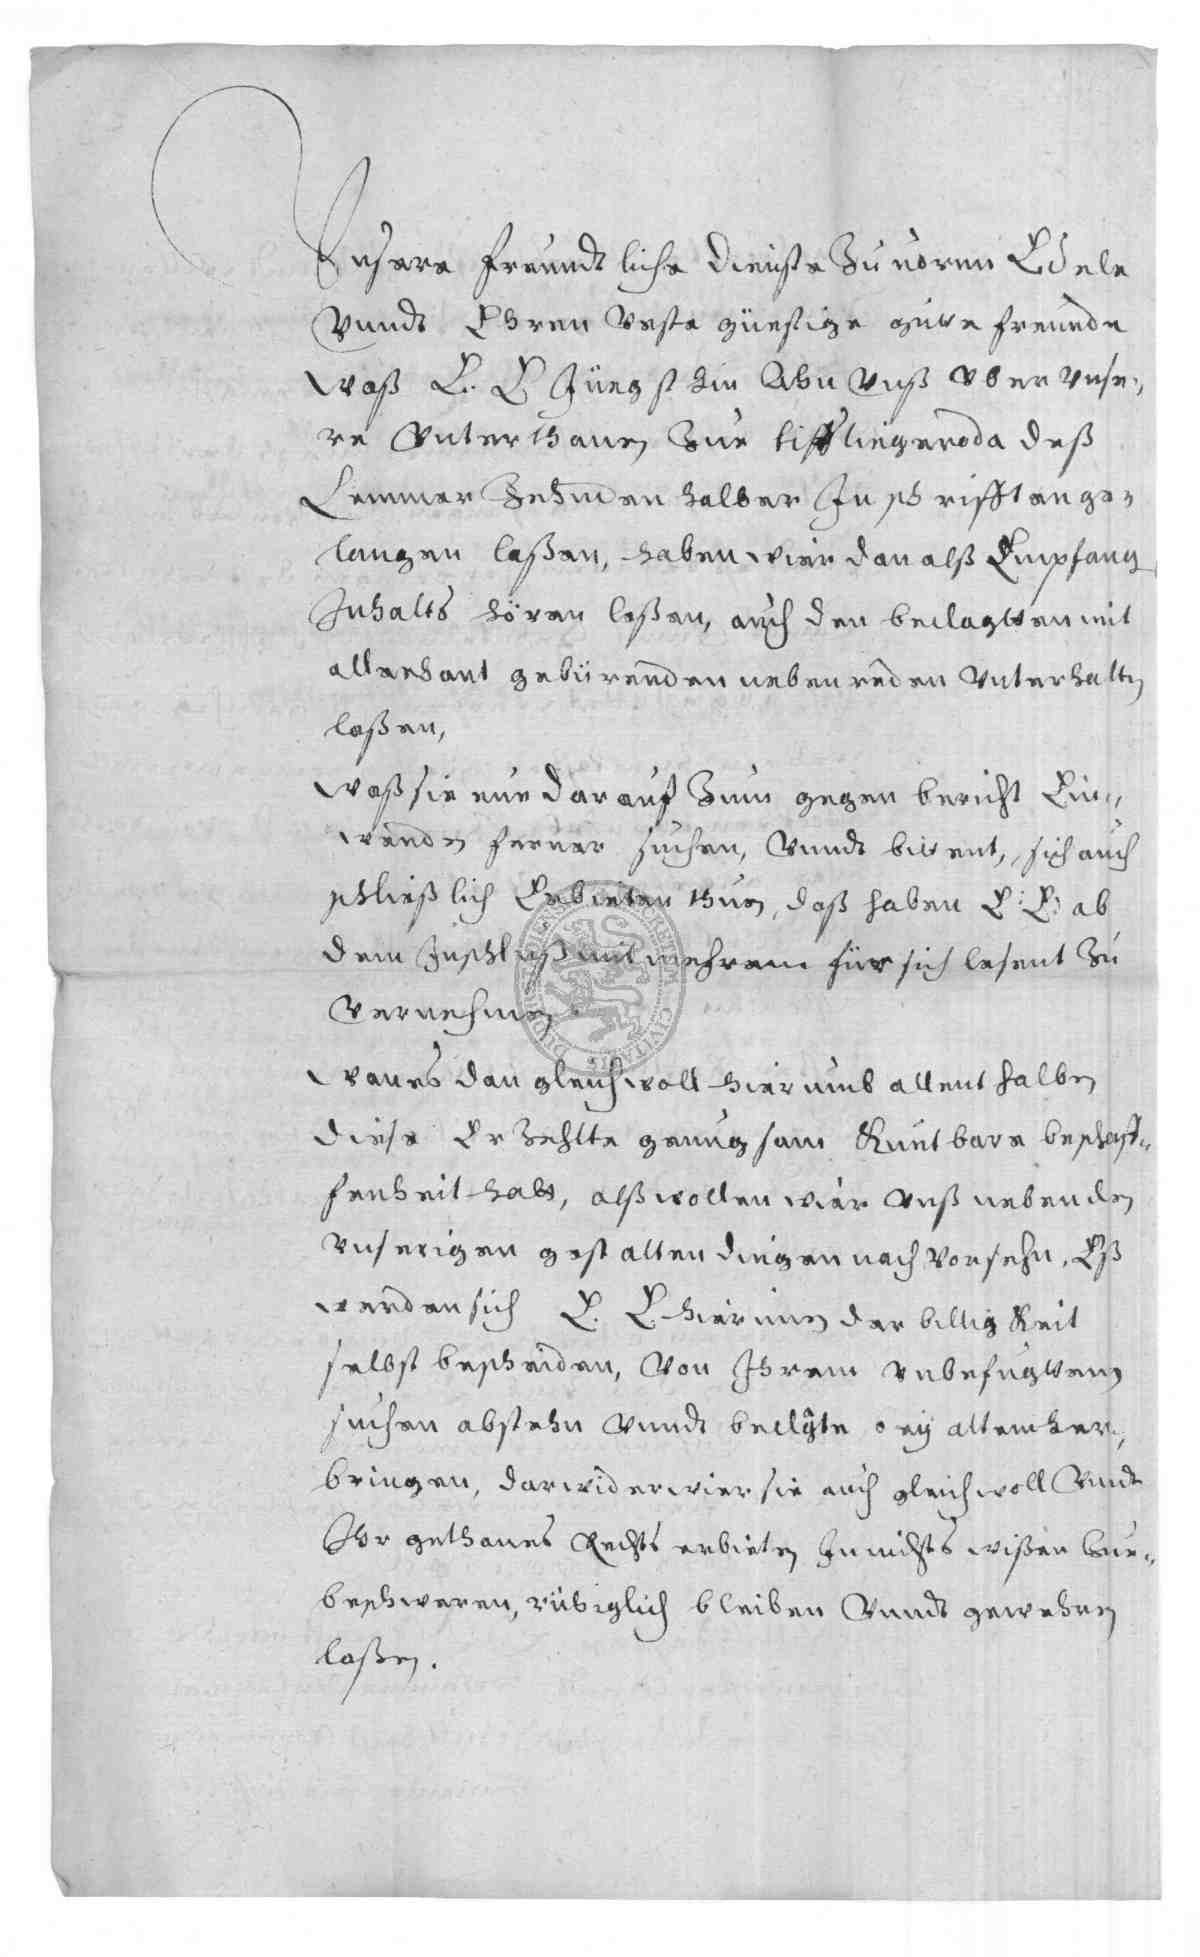 Unsere freundtliche dienste Zuuorn Edele
Vundt Ehren Veste günstige gute freunde
waß E. E Jüngsthin Ahn Vnß Vber Vnse-,
re Vnterthanen Zue tifflingeroda deß
Lemmer Zehnden halber In schrifft ange-
langen laßen, haben wier dan alß Empfang
Inhalts hören laßen, auch den beclagtten mit
allerhant gebürenden nebenreden Vnterhalten
laßen,
waß sie nue darauf Zum gegen bericht Ein-,
wenden ferner suchen, Vundt bittent, sich auch
schließlich Erbieten thun, daß haben E: E: ab
dem Inschluß mit mehrem für sich lesent Zu
Vernehmen
wan es dan gleichwoll hierumb allenthalben
diese Erzehlte genugsam Kuntbare beschaff-
fenheit hatt, alß wollen wier Vnß neben den
Vnserigen gestalten dingen nach Vorsehn, Eß
werden sich E. E. hierinnen der billigkeit
selbst bescheiden, Von Ihrem Vnbefugttem
suchen abstehn Vundt beclgte bey altem her-,
bringen, darwider wier sie auch gleichwoll Vndt
Ihr gethanes Rechts erbieten In nichts wißen Zue-
beschweren, rühiglich bleiben Vundt gewehren
laßen.
SIGILLUM CIVITATIS